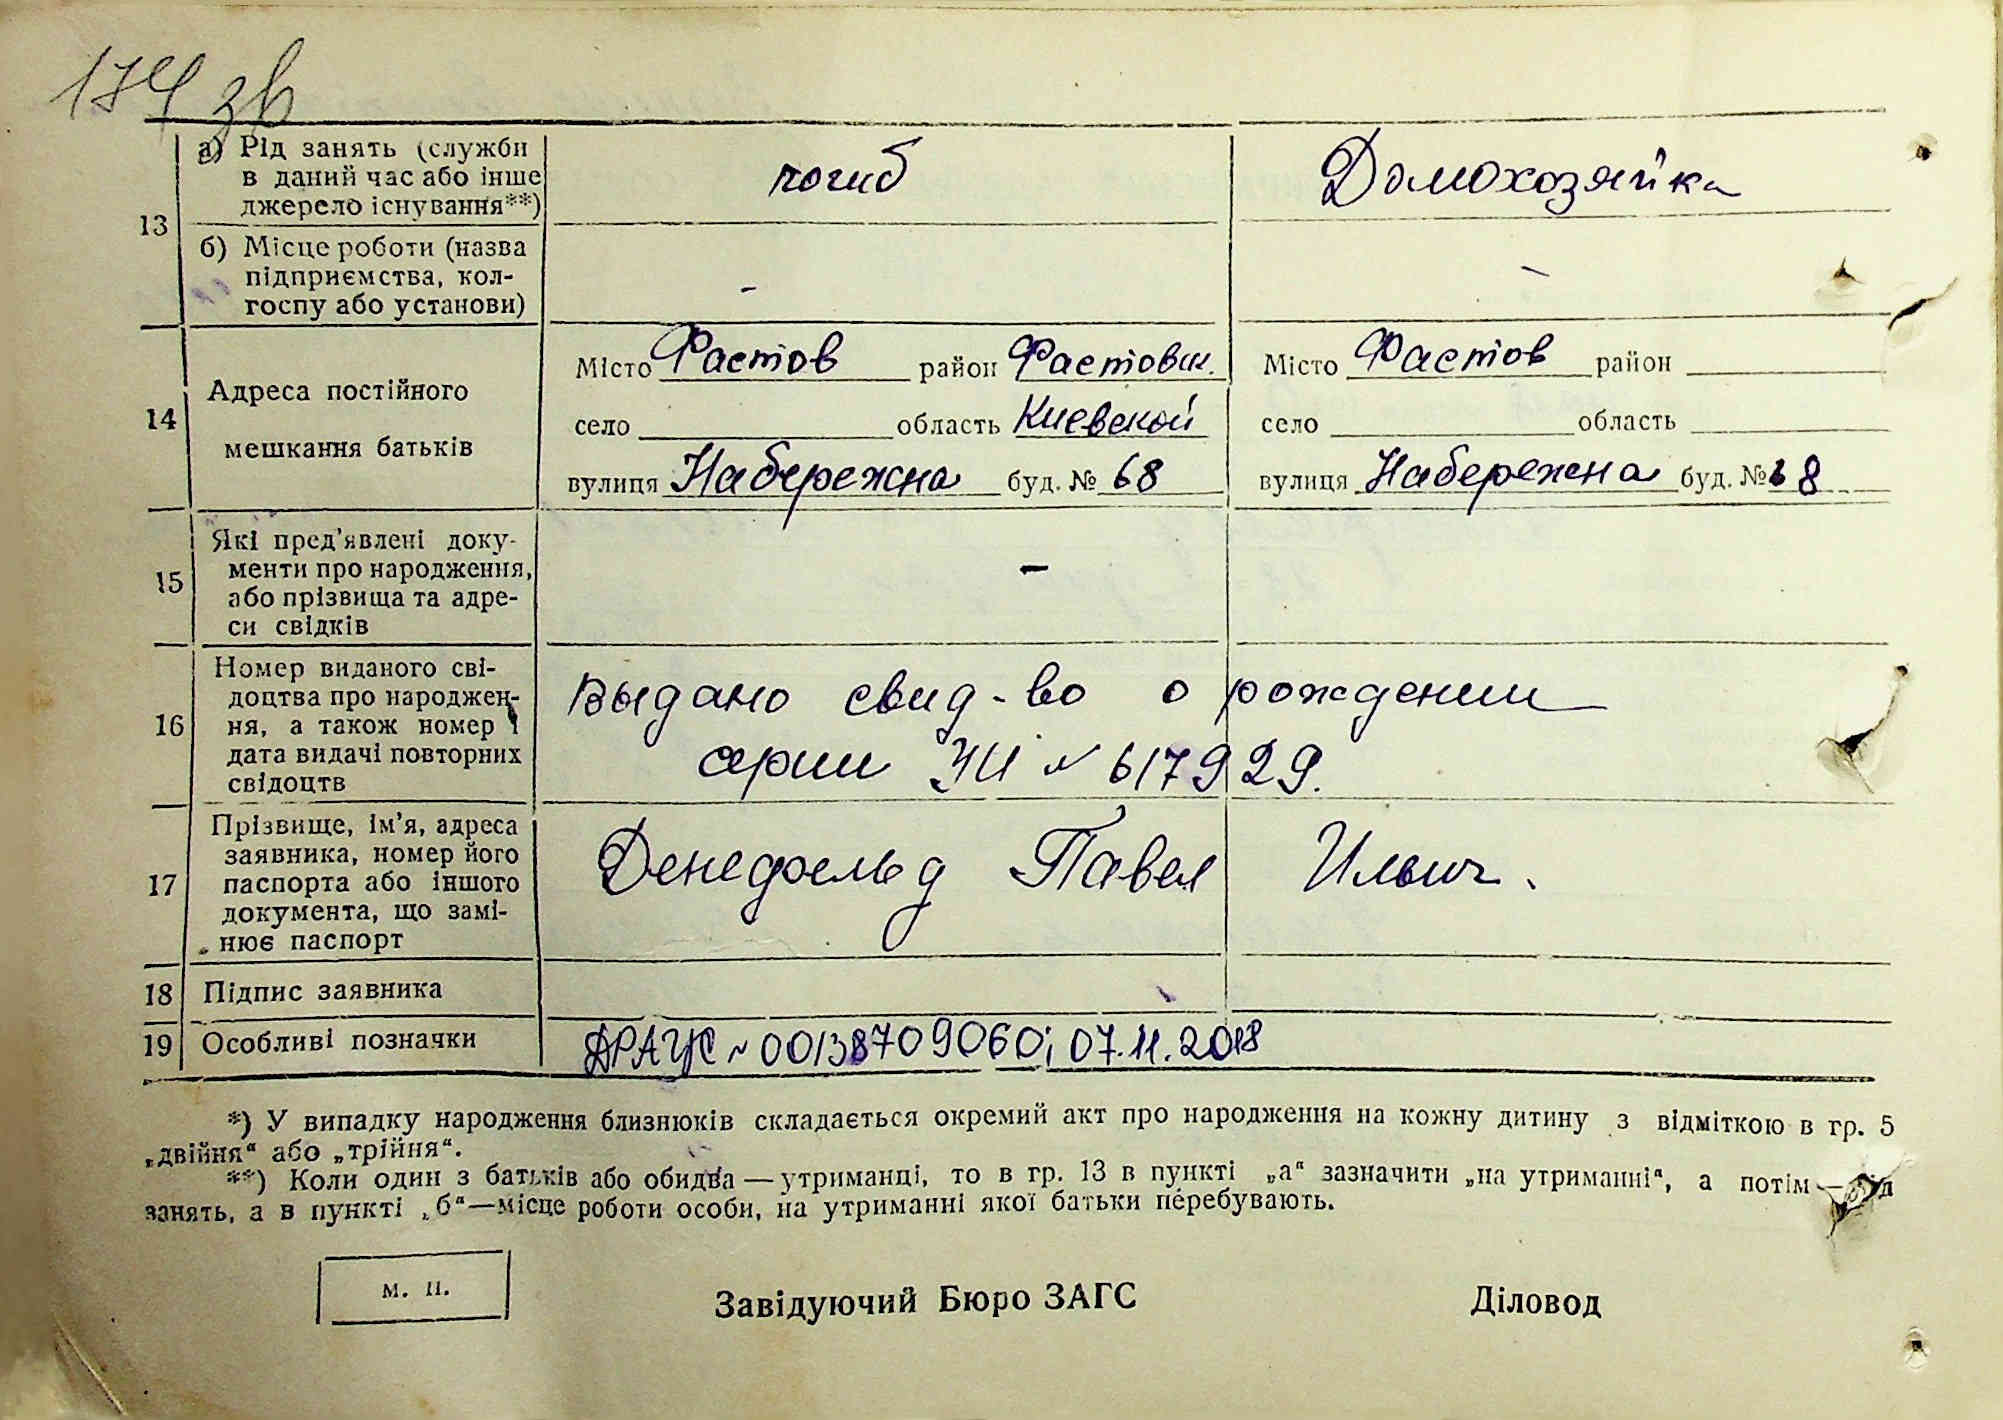 174 зв
13
а) Рід занять (служби
в даний час або інше
джерело існування**)
погиб
Домохозяйка
б) Місце роботи (назва
підприємства, кол-
госпу або установи)
-
-
14
Адреса постійного
мешкання батьків
Місто Фастов район Фастовск.
село область Киевской
вулиця Набережна буд. № 68
Місто Фастов район
село область
вулиця Набережна буд. № 68
15
Які пред'явлені доку-
менти про народження,
або прізвища та адре-
си свідків
-
16
Номер виданого сві-
доцтва про народжен-
ня, а також номер і
дата видачі повторних
свідоцтв
Выдано свид-во о рождении
серии № 617929.
17
Прізвище, ім'я, адреса
заявника, номер його
паспорта або іншого
документа, що замі-
нює паспорт
Денефельд Павел Ильич.
18
Підпис заявника
19
Особливі позначки
ДРАЦС № 00138709060; 07.11.2018
*) У випадку народження близнюків складається окремий акт про народження на кожну дитину з відміткою в гр. 5
„двійня“ або „трійня“.
**) Коли один з батьків або обидва — утриманці, то в гр. 13 в пункті „а“ зазначити „на утриманні“, а потім —
занять, а в пункті „б“—місце роботи особи, на утриманні якої батьки перебувають.
М. П.
Завідуючий Бюро ЗАГС
Діловод